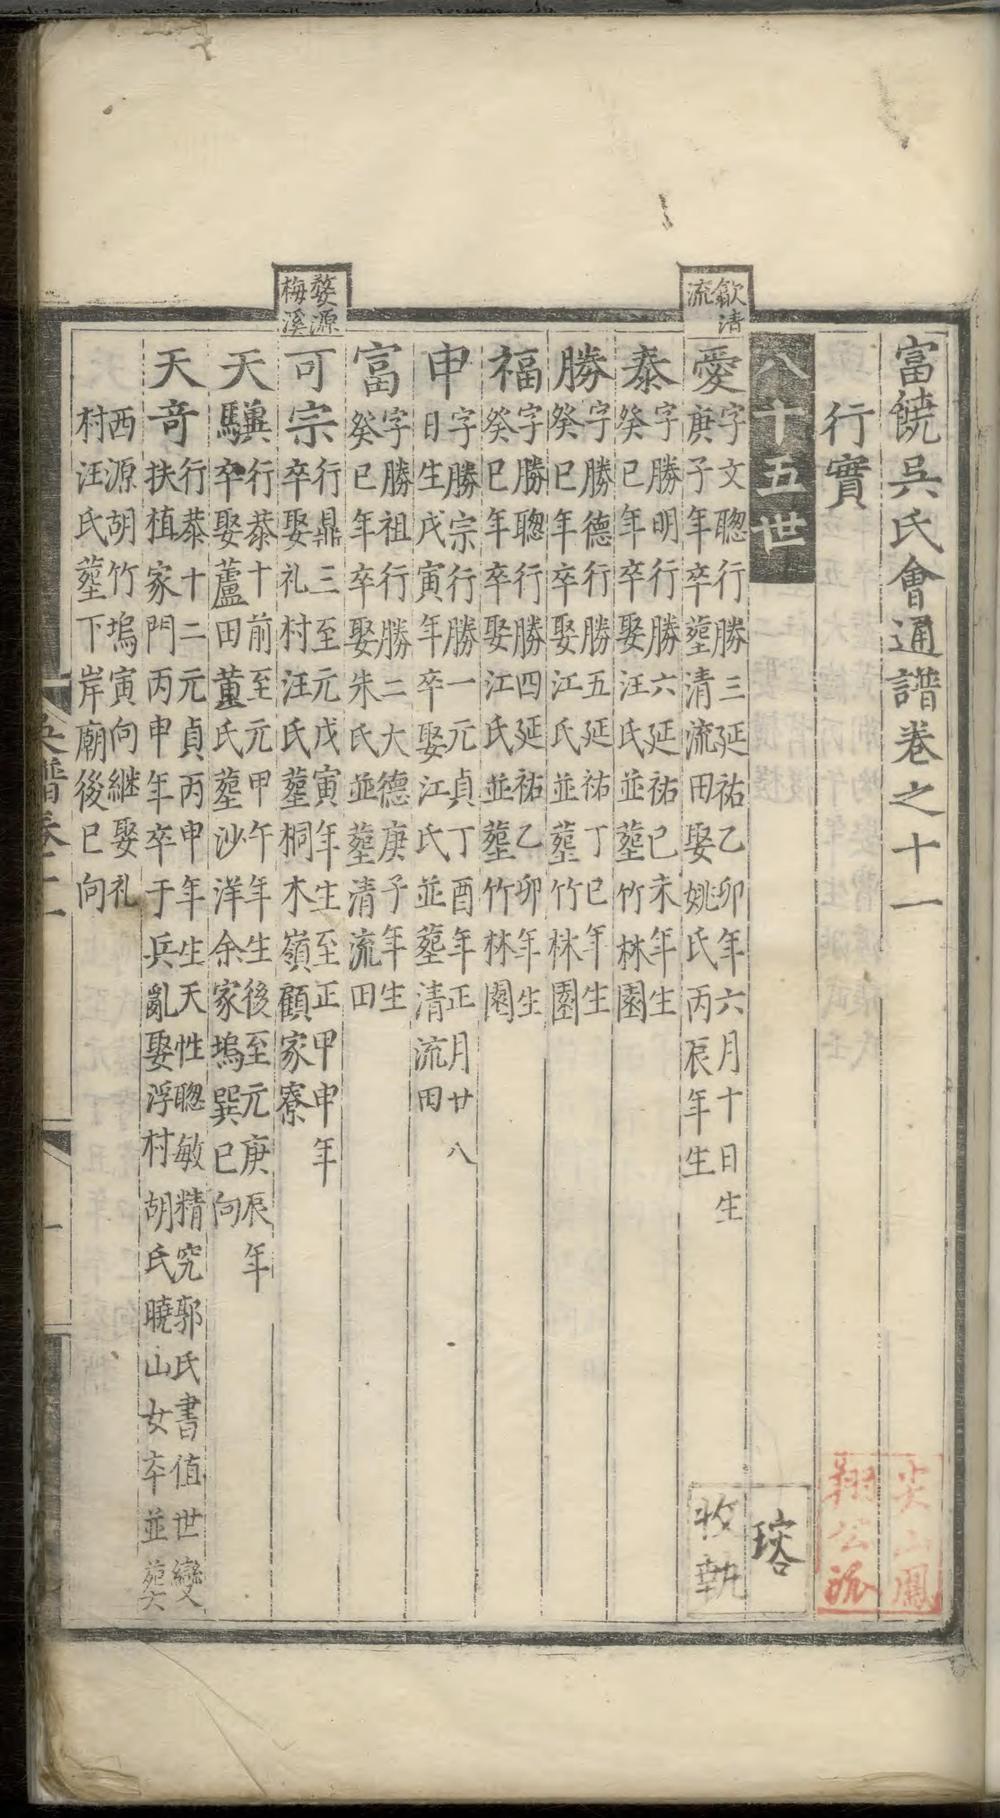 富饒吳氏會通譜卷之十一
行實
八十五世
歙清
流
愛
字文聰行勝三延祐乙卯年六月十日生
庚子年卒塟清流田娶姚氏丙辰年生
泰
字勝明行勝六延祐己未年生
癸巳年卒娶汪氏並塟竹林園
勝
字勝德行勝五延祐丁巳年生
癸巳年卒娶江氏並塟竹林園
福
字勝聰行勝四延祐乙卯年生
癸巳年卒娶江氏並塟竹林園
申
字勝宗行勝一元貞丁酉年正月廿八
日生戊寅年卒娶江氏並塟清流田
富
字勝祖行勝二大德庚子年生
癸巳年卒娶朱氏並塟清流田
婺源
梅溪
可宗
行鼎三至元戊寅年生至正甲申年
卒娶礼村汪氏塟桐木嶺顧家寮
天驥
行恭十前至元甲午年生後至元庚辰年
卒娶蘆田董氏塟沙洋余家塢巽巳向
天奇
行恭十二元貞丙申年生天性聰敏精究郭氏書值世變
扶植家門丙申年卒于兵亂娶浮村胡氏曉山女卒並塟大
西源胡竹塢寅向継娶礼
村汪氏塟下岸廟後巳向
吳譜卷十一
一
尖山鳳
翔公派
瑢
收執